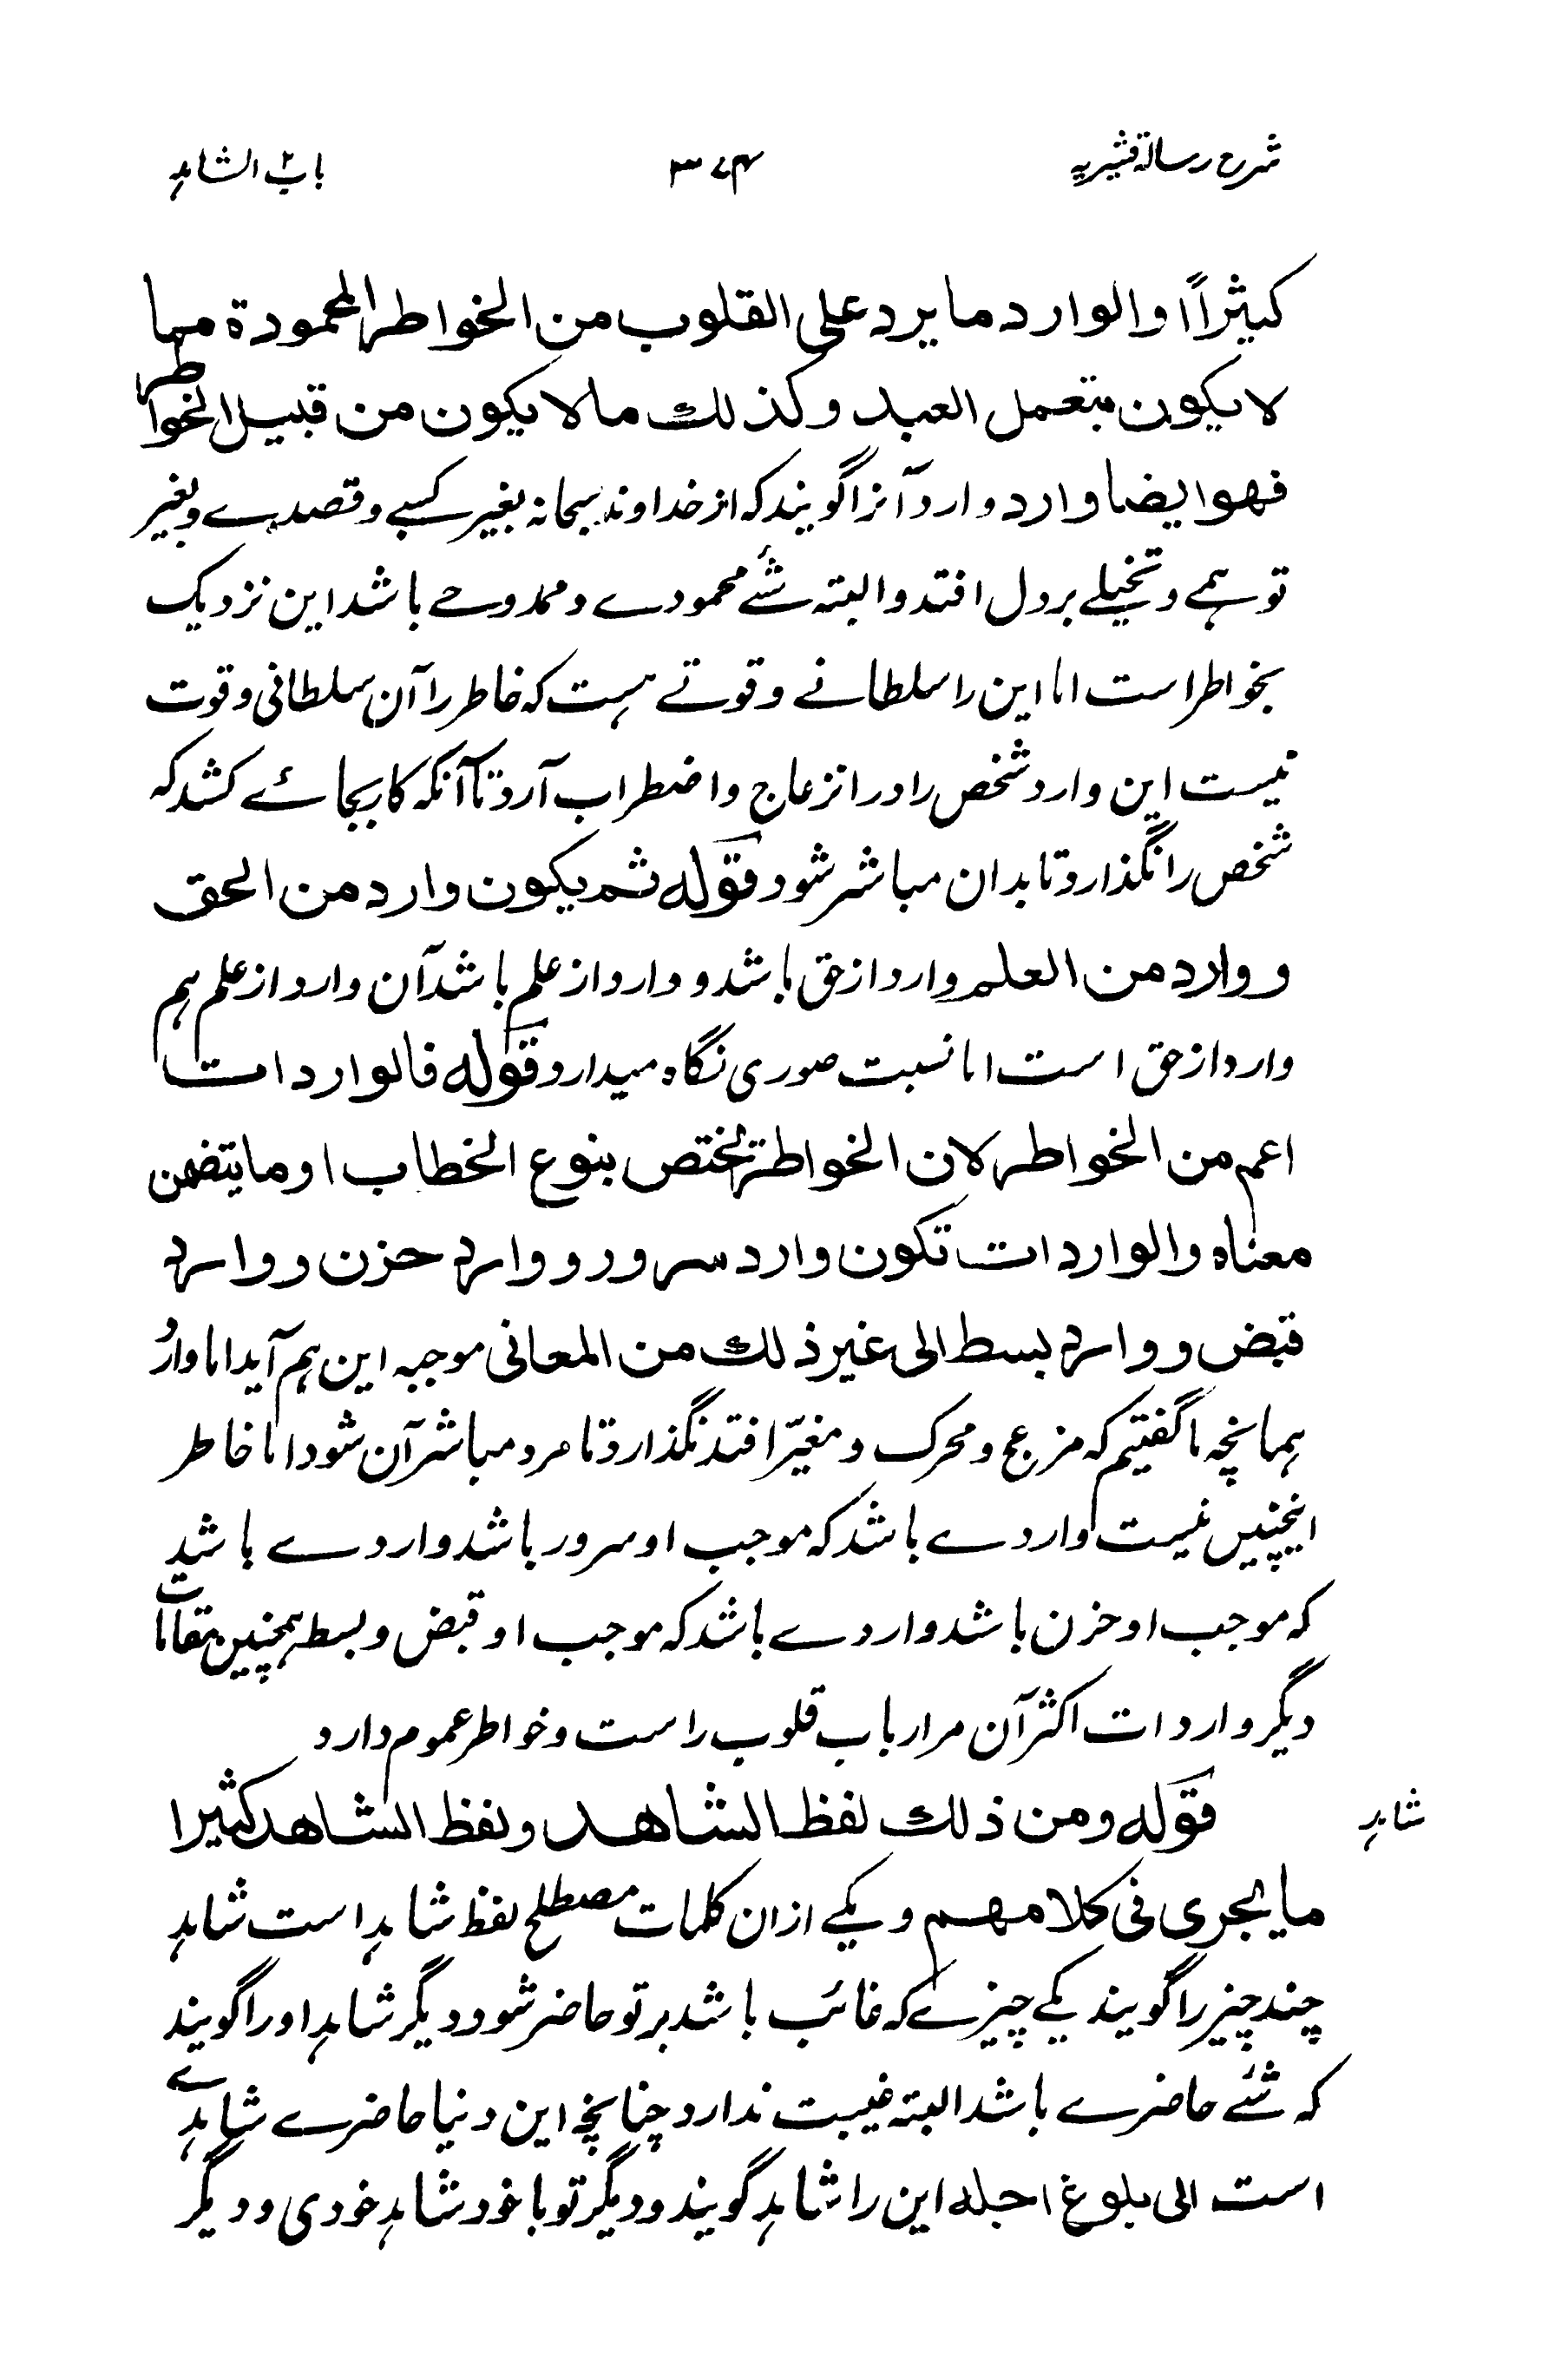 شرح رسالۂ قشیریہ ۳۷۴ باب الشاہد
کثیراً والوارد ما یرد علی القلوب من الخواطر المحمودة مما
لا یکون بتعمل العبد وکذلك ما لا یکون من قبیل الخواطر
فهو ایضا وارد وارد آنرا گویند کہ از خداوند سبحانہ بغیر کسبے و قصدے و بغیر
توہمے و تخیلے بر دل افتد والبتہ شئے محمودے و ممدوحے باشد این نزدیک
بخواطر است اما این را سلطانے و قوتے ہست کہ خاطر را آن سلطانی و قوت
نیست این وارد شخص را در انزعاج و اضطراب آرد تا آنکہ کار بجائے کشد کہ
شخص را نگذارد تا بدان مباشر شود قوله ثم یکون وارد من الحق
و وارد من العلم وارد از حق باشد و وارد از علم باشد آن وارد از علم ہم
وارد از حق است اما نسبت صوری نگاہ میدارد قوله فالواردات
اعم من الخواطر لان الخواطر تختص بنوع الخطاب او ما یتضمن
معناہ والواردات تکون وارد سرور و وارد حزن و وارد
قبض و وارد بسط الی غیر ذلك من المعانی موجبہ این ہم آید اما وارد
ہمانچہ ما گفتیم کہ مزعج و محرک و مغیّر افتد نگذارد تا مرد مباشر آن شود اما خاطر
اینچنیں نیست واردے باشد کہ موجب او سرور باشد واردے باشد
کہ موجب او حزن باشد واردے باشد کہ موجب او قبض و بسط ہمچنیں مقامات
دیگر واردات اکثر آن مر ارباب قلوب راست و خواطر عموم دارد
شاہد
قوله ومن ذلك لفظ الشاهد ولفظ الشاهد کثیرا
ما یجری فی کلامهم و یکے ازان کلمات مصطلح لفظ شاہد است شاہد
چند چیز را گویند یکے چیزے کہ غائب باشد بر تو حاضر شود دیگر شاہد او را گویند
کہ شئے حاضرے باشد البتہ غیبت ندارد چنانچہ این دنیا حاضرے شاہدے
است الی بلوغ اجله این را شاہد گویند و دیگر تو با خود شاہد خودی و دیگر